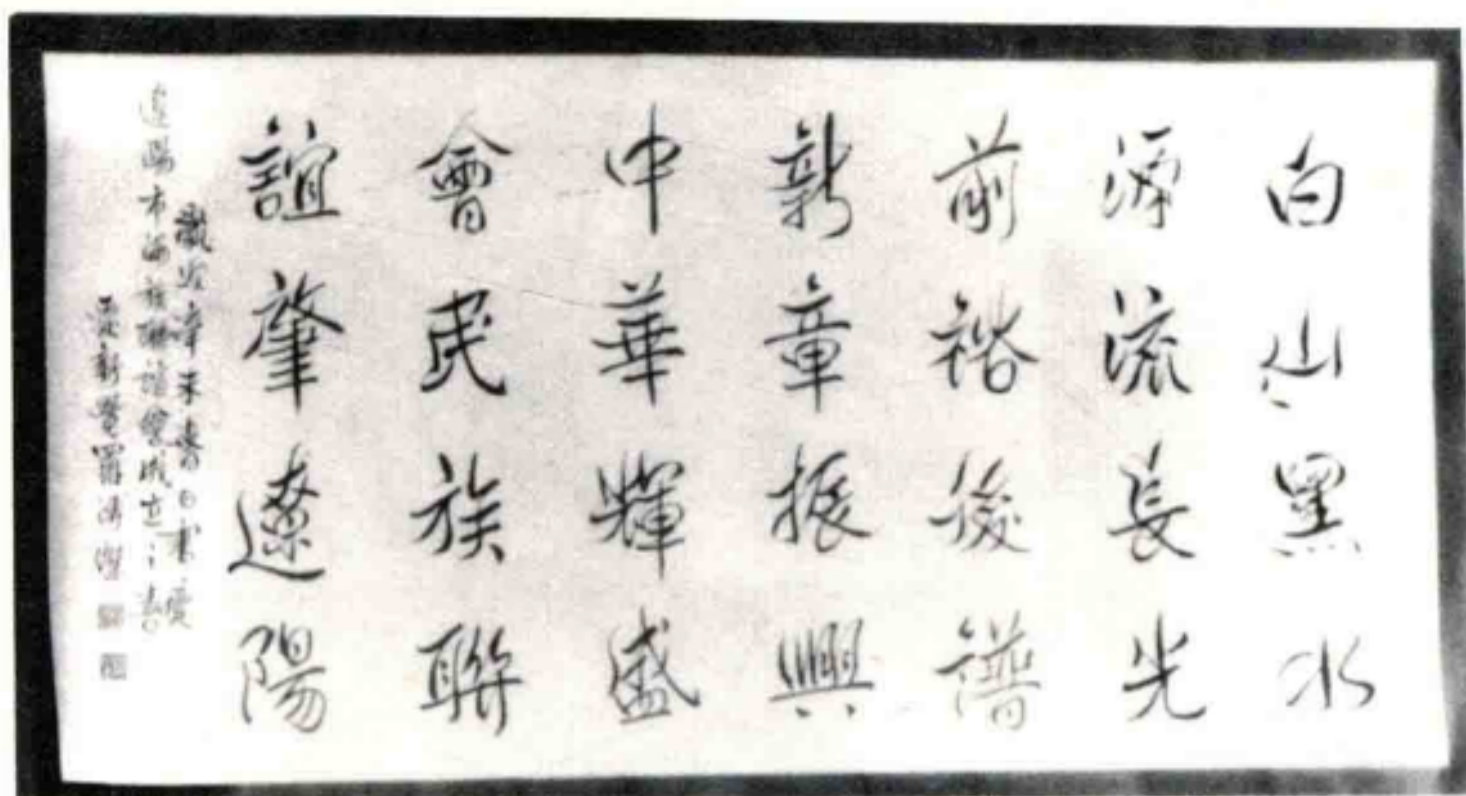 白山黑水
源流長光
前裕後譜
新章振興
中華輝盛
會民族聯
誼肇遼陽
歲辛未春日書慶
遼陽市滿族聯誼會成立之喜
愛新覺羅